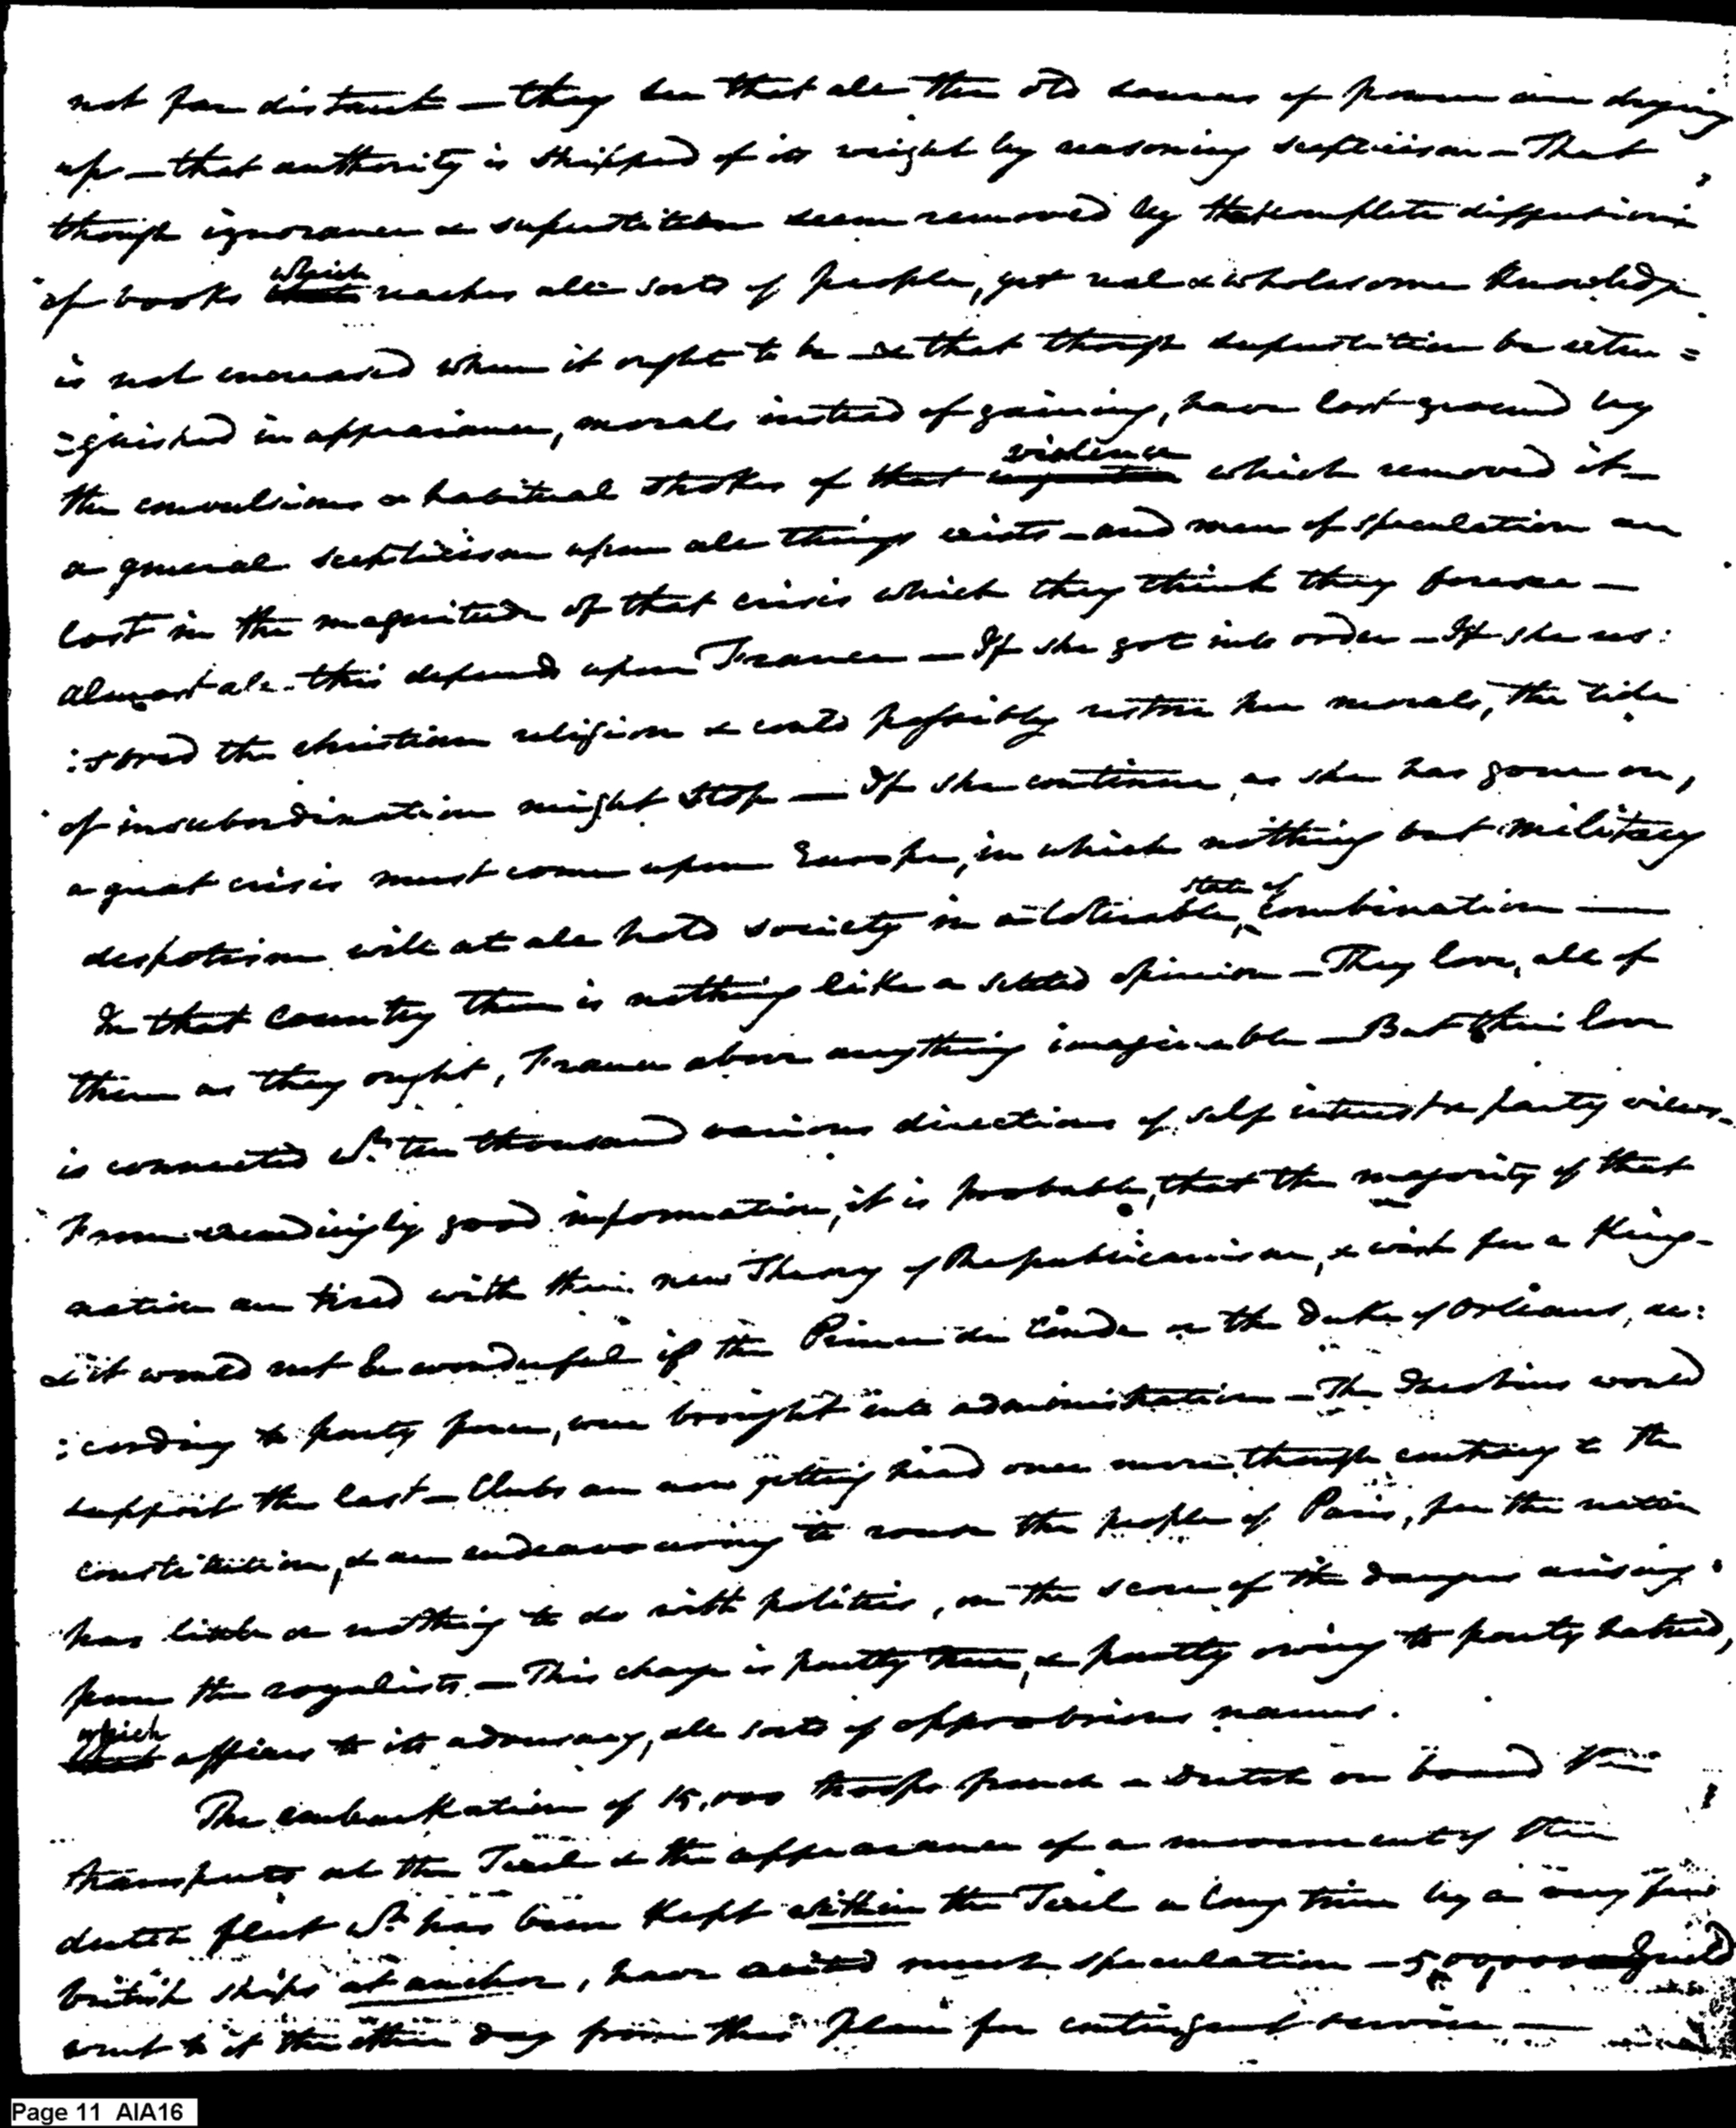 not far distant — they see that all the old sources of power are drying
up — that authority is stripped of its weight by reasoning scepticism — That
though ignorance & superstition seem removed by the complete diffusion
of books which reaches all sorts of people, yet real & wholesome knowledge
is not increased where it ought to be — & that though superstition be extin=
=guished in appearance, morals instead of gaining, have lost ground by
the convulsions & habitual strokes of that violence which removed it —
a general scepticism upon all things exists — and men of speculation are
lost in the magnitude of that crisis which they think they foresee —
almost all this depends upon France — If she got into order — If she res:
:tored the christian religion & could possibly restore her morals, the tide
of insubordination might stop — If she continue, as she has gone on,
a great crisis must come upon Europe, in which nothing but military
despotism will at all hold society in a tolerable state of combination —
In that country there is nothing like a settled opinion — They love, all of
them as they ought, France above anything imaginable — But their love
is connected wh. ten thousand various directions of self interest & party views —
From exceedingly good information, it is probable, that the majority of that
nation are tired with their new Theory of Republicanism, & wish for a King —
& it would not be wonderful if the Prince de Conde or the Duke of Orleans, ac:
:cording to party force, were brought into administration — The would
support the last — Clubs are now getting head once more, though contrary to the
constitution, & are endeavouring to rouse the people of Paris, for the nation
has little or nothing to do with politics, on the score of the dangers arising
from the royalists. — This charge is partly true, & partly owing to party hatred,
which affixes to its adversary, all sorts of opprobrious names.
The embarkation of 15,000 troops french & dutch on board their
transports at the Texel & the appearance of a movement of their
dutch fleet wh. has been kept within the Texel a long time by a very few
british ships at anchor, have excited much speculation —
went to it the other day from this place for contingent service —
Page 11 AIA16